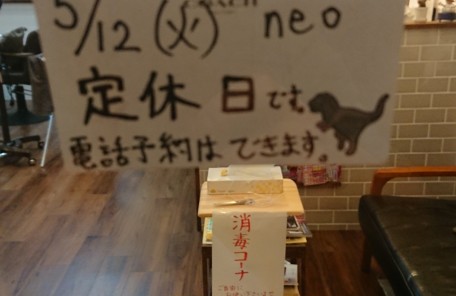 5/12(火) neo
定休日です
電話予約はできます。
消毒コーナ